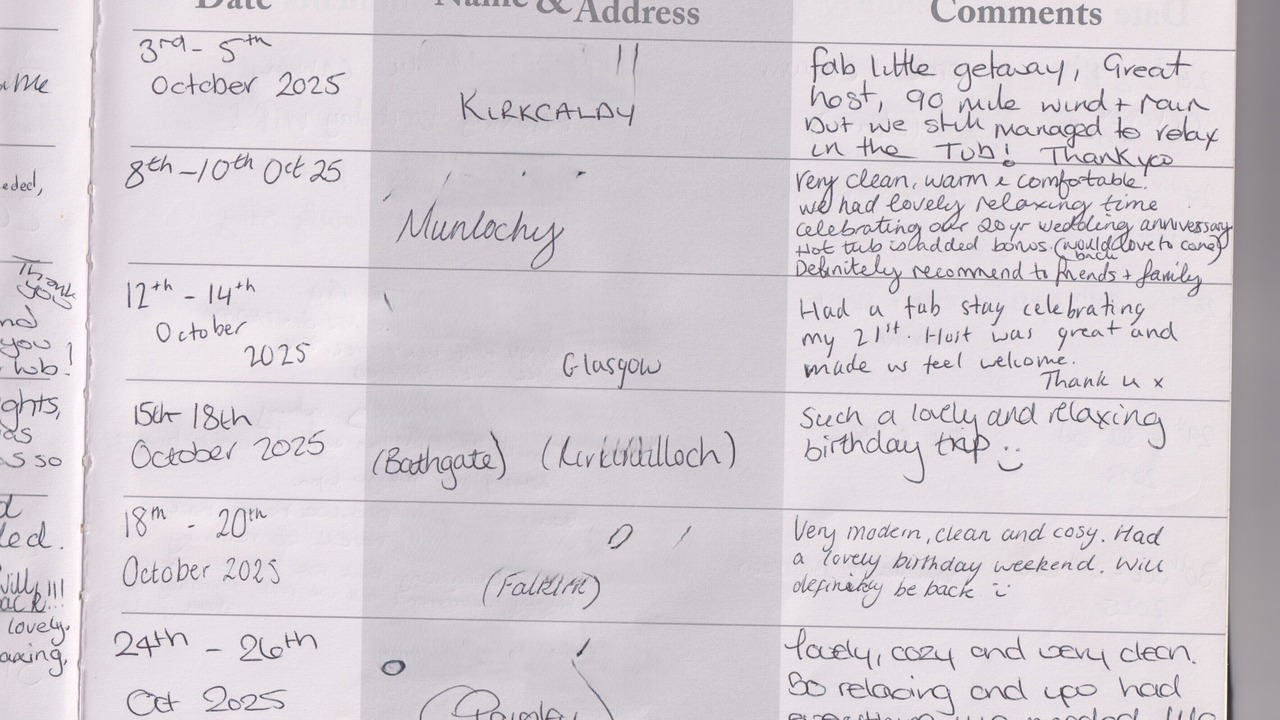 Date Name & Address Comments
3rd - 5th
October 2025
KIRKCALDY
fab little getaway, Great
host, 90 mile wind + rain
but we still managed to relax
in the Tub! Thank you
8th - 10th Oct 25
Munlochy
Very clean, warm & comfortable.
we had lovely relaxing time
celebrating our 20yr wedding anniversary
Hot tub is added bonus. (would love to come)
back
Definitely recommend to friends + family
12th - 14th
October
2025
Glasgow
Had a fab stay celebrating
my 21st. Host was great and
made us feel welcome.
Thank u x
15th - 18th
October 2025
(Bathgate) (Kirkintilloch)
Such a lovely and relaxing
birthday trip
18th - 20th
October 2025
(Falkirk)
Very modern, clean and cosy. Had
a lovely birthday weekend. Will
definitely be back
24th - 26th
Oct 2025
(Paisley)
lovely, cozy and very clean.
So relaxing and you had
eeded,
Thank
you
you
ghts,
as so
lovely,